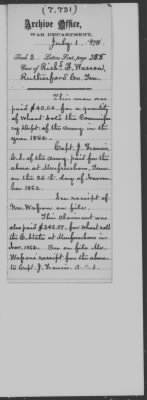 (7,731)
Archive Office,
WAR DEPARTMENT,
July 1, 1878
Book 2 Letters Rec'd, page 385
Case of Rich'd S. Wasson,
Rutherford Co. Tenn.
This man was
paid $40.64 for a quantity
of wheat sold the Commissary
Dept. of the Army in the
year 1862.
Capt. J. Francis,
C.S. of the Army, paid for the
above at Murfreesboro, Tenn
on the 26th day of Novem-
ber 1862.
See receipt of
Mr. Wasson on file.
This Claimant was
also paid $345.07, for wheat sold
the C. States at Murfreesboro in
Nov. 1862. See on file Mr.
Wasson's receipt for the above
to Capt. J. Francis. A.C.S.